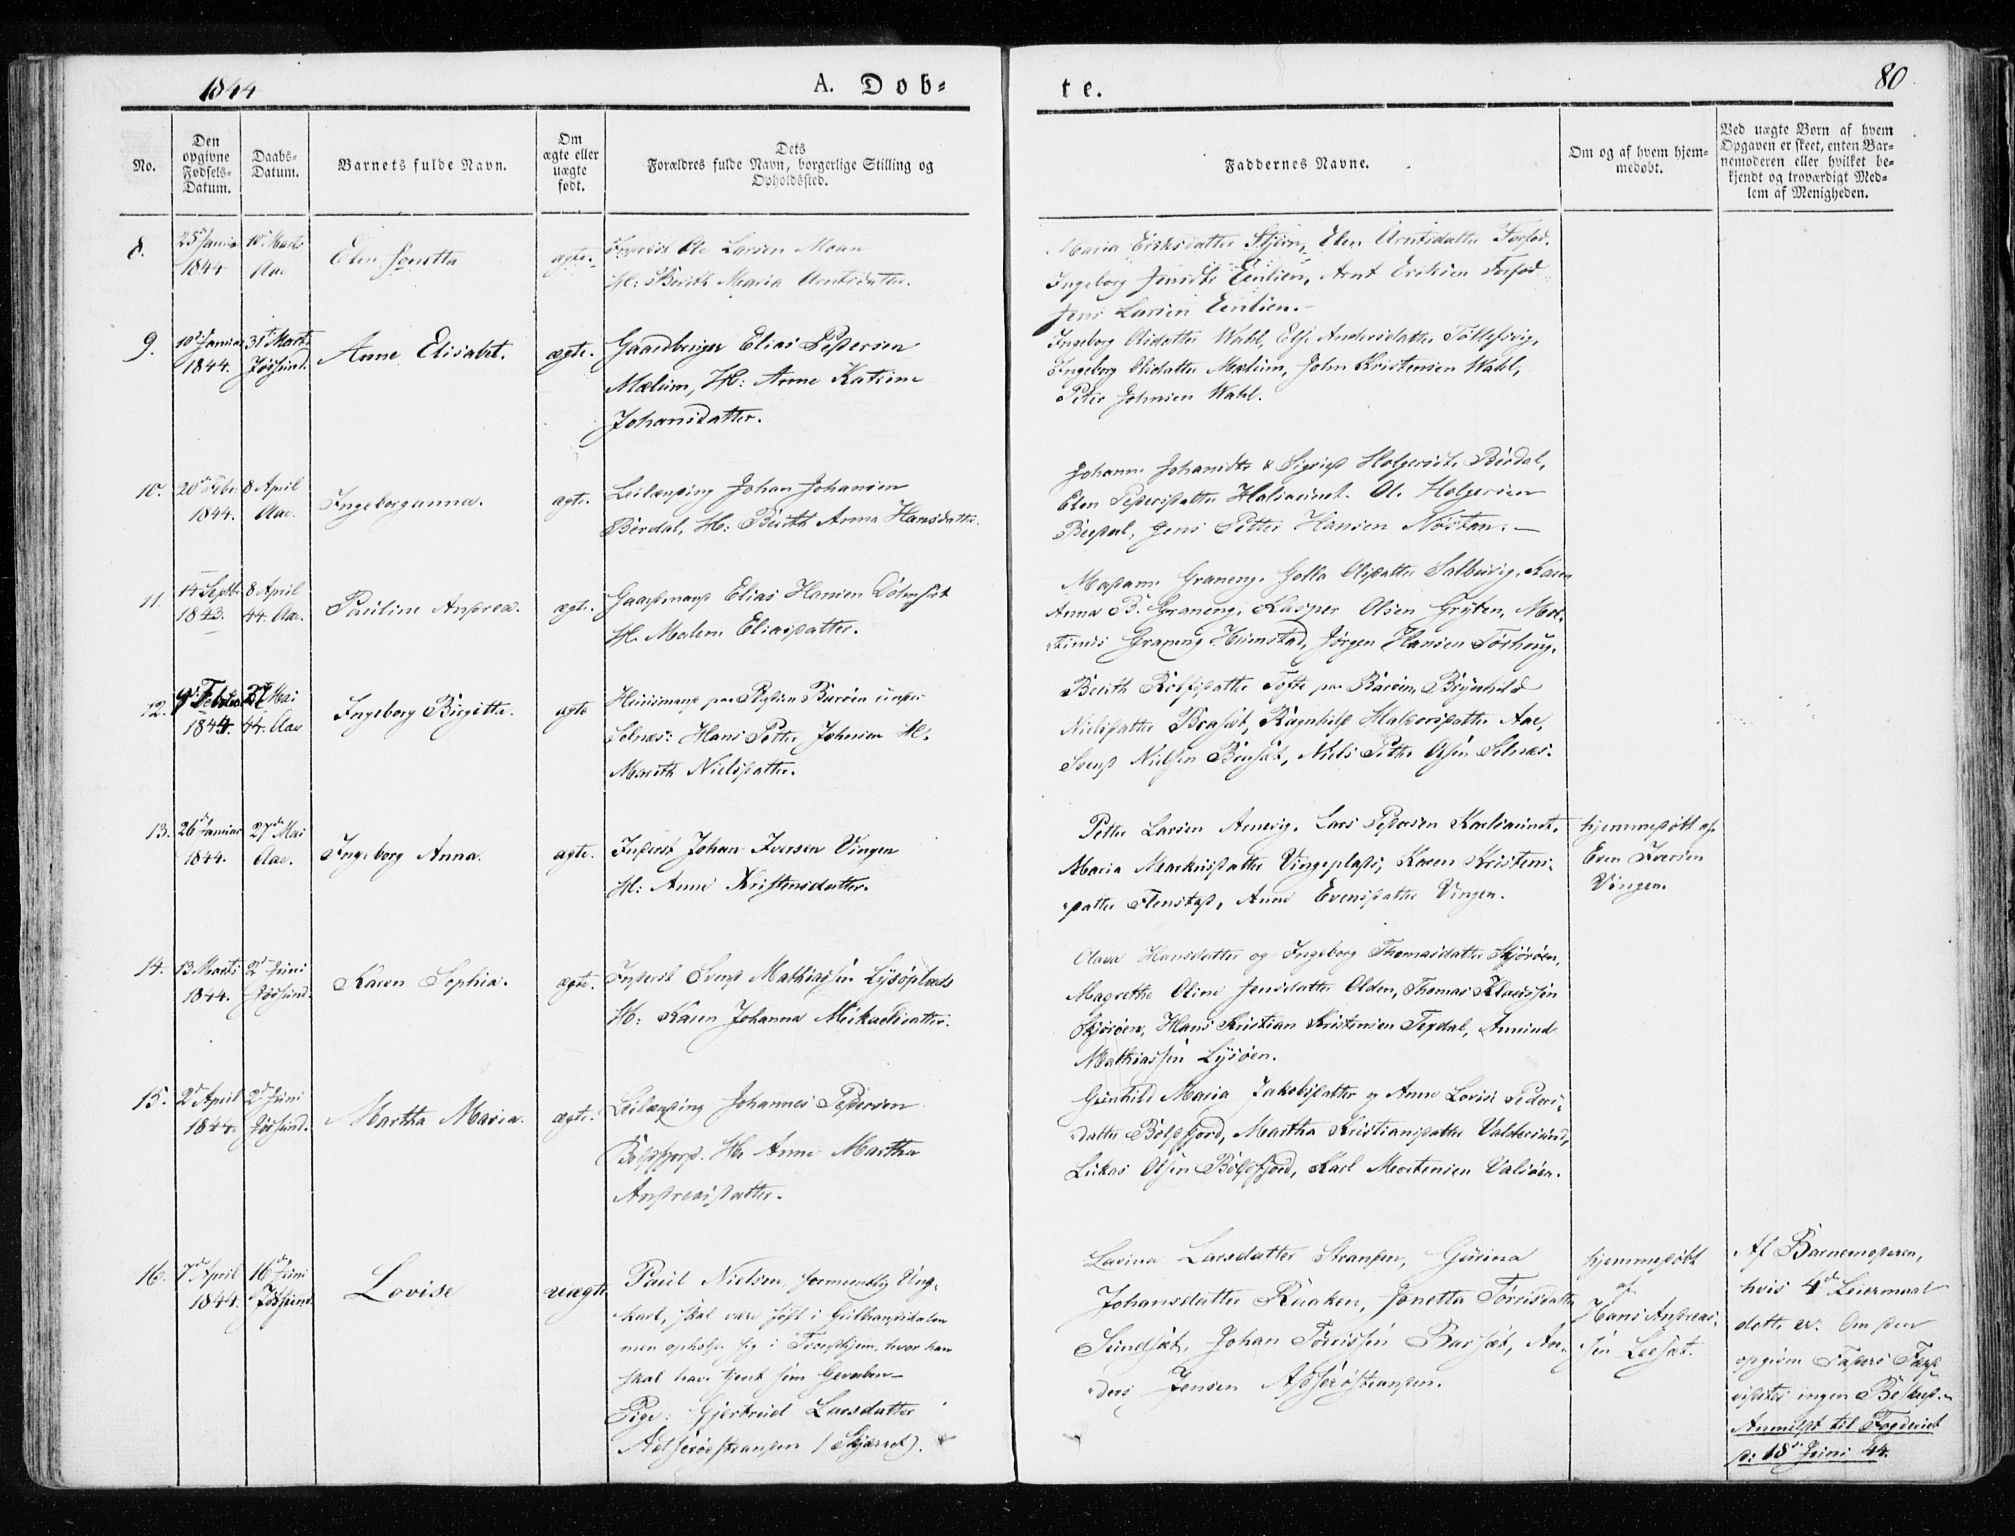 1844 A. Døb- te. 80
No.
Den opgivne Fødsels-Datum.
Daabs-Datum.
Barnets fulde Navn.
Om ægte eller uægte født.
Dets Forældres fulde Navn, borgerlige Stilling og Opholdssted.
Faddernes Navne.
Om og af hvem hjemmedøbt.
Ved uægte Børn af hvem Opgaven er skeet, enten Barnemoderen eller hvilket bekjendt og troværdigt Medlem af Menigheden.
8. 25d Januar 10d Marts
1844 Aae
Elen Jonetta ægte.
Inderst Ole Larsen Moan
H: Berith Maria Arntsdatter.
Maria Eriksdatter Stjern, Elen Arntsdatter Forfod.
Ingeborg Jensdtr Eenlien, Arnt Eriksen Forfod
Jens Larsen Eenlien.
9. 10d Januar 31te Marts
1844. Jøssund.
Anne Elisabet. ægte.
Gaardbruger Elias Pedersen
Mælum, H: Anne Katrine
Johansdatter.
Ingeborg Olsdatter Wahl, Else Andersdatter
Ingeborg Olsdatter Mælum, John Kristensen Wahl,
Peter Johnsen Wahl.
10. 20d Febr. 8 April
1844. Aae.
Ingeborganna. ægte.
Leilænding Johan Johansen
Børdal, H: Berith Anna Hansdatter.
Johanna Johansdtr & Sigrid Holgersdt. Børdal,
Elen Pedersdatter Ole Holgersen
Jens Petter Hansen
11. 14 Septbr 8 April
1843. 44. Aae.
Pauline Andrea. ægte.
Gaardmand Elias Hansen
H. Malene Eliasdatter.
Madam Graneng, Golla Olsdatter Salbuvig, Karen
Anna B. Graneng, Kasper Olsen Gryten,
Graneng Hiimstad, Jørgen Hansen
12. 4d Februar 27 Mai
1844. 44. Aae
Ingeborg Birgitte. ægte
Huusmand paa Barøen under
Selnæs: Hans Petter Johnsen H:
Marith Nielsdatter.
Berith Rolfsdatter Tofte paa Barøen, Brynhild
Nielsdatter Ragnhild Halvorsdatter Aae,
Svend Nielsen Niels Petter Olsen Selnæs.
13. 26d Januar 27d Mai
1844. Aae.
Ingeborg Anna. ægte.
Inderst Johan Iversen Vingen
H: Anne Kristensdatter.
Petter Larsen Arnevig, Lars Pedersen
Maria Markusdatter Vingeplads, Karen Kristens-
datter Flenstad, Anne Evensdatter Vingen.
hjemmedøbt af
Even Iversen
Vingen.
14. 13 Marts 2d Juni
1844. Jøssund.
Karen Sophia. ægte.
Inderst Svend Mathiassen Lysøplads
H: Karen Johanna Mikaelsdatter.
Olava Hansdatter og Ingeborg Thomasdatter Skjørøen,
Magrethe Oline Jensdatter Olden, Thomas Klaussen
Skjørøen, Hans Kristian Kristensen Texdal, Amund
Mathiassen Lysøen.
15. 2d April 2d Juni
1844. Jøssund.
Martha Maria. ægte.
Leilænding Johannes Pedersen
H. Anne Martha
Andreasdatter.
Gunhild Maria Jakobsdatter og Anne Lovise Peders-
datter Martha Kristiansdatter Valdersund,
Lukas Olsen Karl Mortensen Valsøen.
16. 7d April 16d Juni
1844. Jøssund.
Lovise uægte.
Paul Nielsen, formeentlig Ung-
karl, skal være født i Gulbrandsdalen
men opholde sig i Trondhjem, hvor han
skal have tjent som
Pige: Gjertrud Larsdatter
Adserøestranden (Skjærret).
Lavina Larsdatter Stranden, Gurina
Johansdatter Kraaken, Jonetta Tørrisdatter
Sundsæt, Johan Tørrissen Barsæt, An-
ders Jensen Adserøstranden.
hjemmedøbt
af
Hans Andreas-
sen Leesæt.
Af Barnemoderen,
hvis 4d Leiermaal
dette er. Om den
opgivne Faders
ingen
Anmeldt til Fogderiet
d: 18d Juni 44.